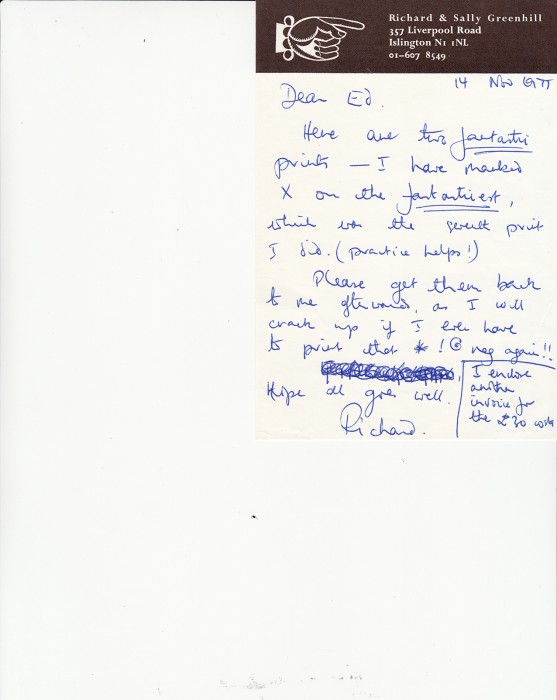 Richard & Sally Greenhill
357 Liverpool Road
Islington N1 1NL
01-607 8549
14 Nov 1977
Dear Ed.
Here are two fantastic
prints — I have marked
X on the fantastiest,
which was the seventh print
I did. (practice helps!)
Please get them back
to me afterwards, as I will
crack up if I ever have
to print that * ! @ neg again!!
Hope all goes well.
Richard.
I enclose
another
invoice for
the £30 with